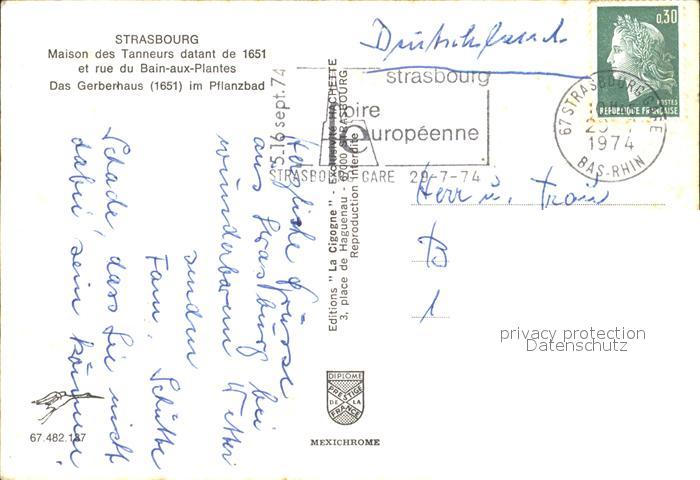 STRASBOURG
Maison des Tanneurs datant de 1651
et rue du Bain-aux-Plantes
Das Gerberhaus (1651) im Pflanzbad
Deutschland
0,30
POSTES
REPUBLIQUE FRANÇAISE
5-16 sept. 74
strasbourg
foire
européenne
STRASBOURG GARE 29-7-74
67 STRASBOURG GARE
1974
BAS-RHIN
Herzliche Grüsse
aus Strasburg bei
wunderbarem Wetter
senden
Fam. Schütte
Schade, dass Sie nicht
dabei sein können!
Editions "La Cigogne" - Exclusivité HACHETTE
3, place de Haguenau - 67000 STRASBOURG
Reproduction Interdite
Herr u. Frau
B
1
privacy protection
Datenschutz
DIPLOME
PRESTIGE
DE LA
FRANCE
MEXICHROME
67.482.137